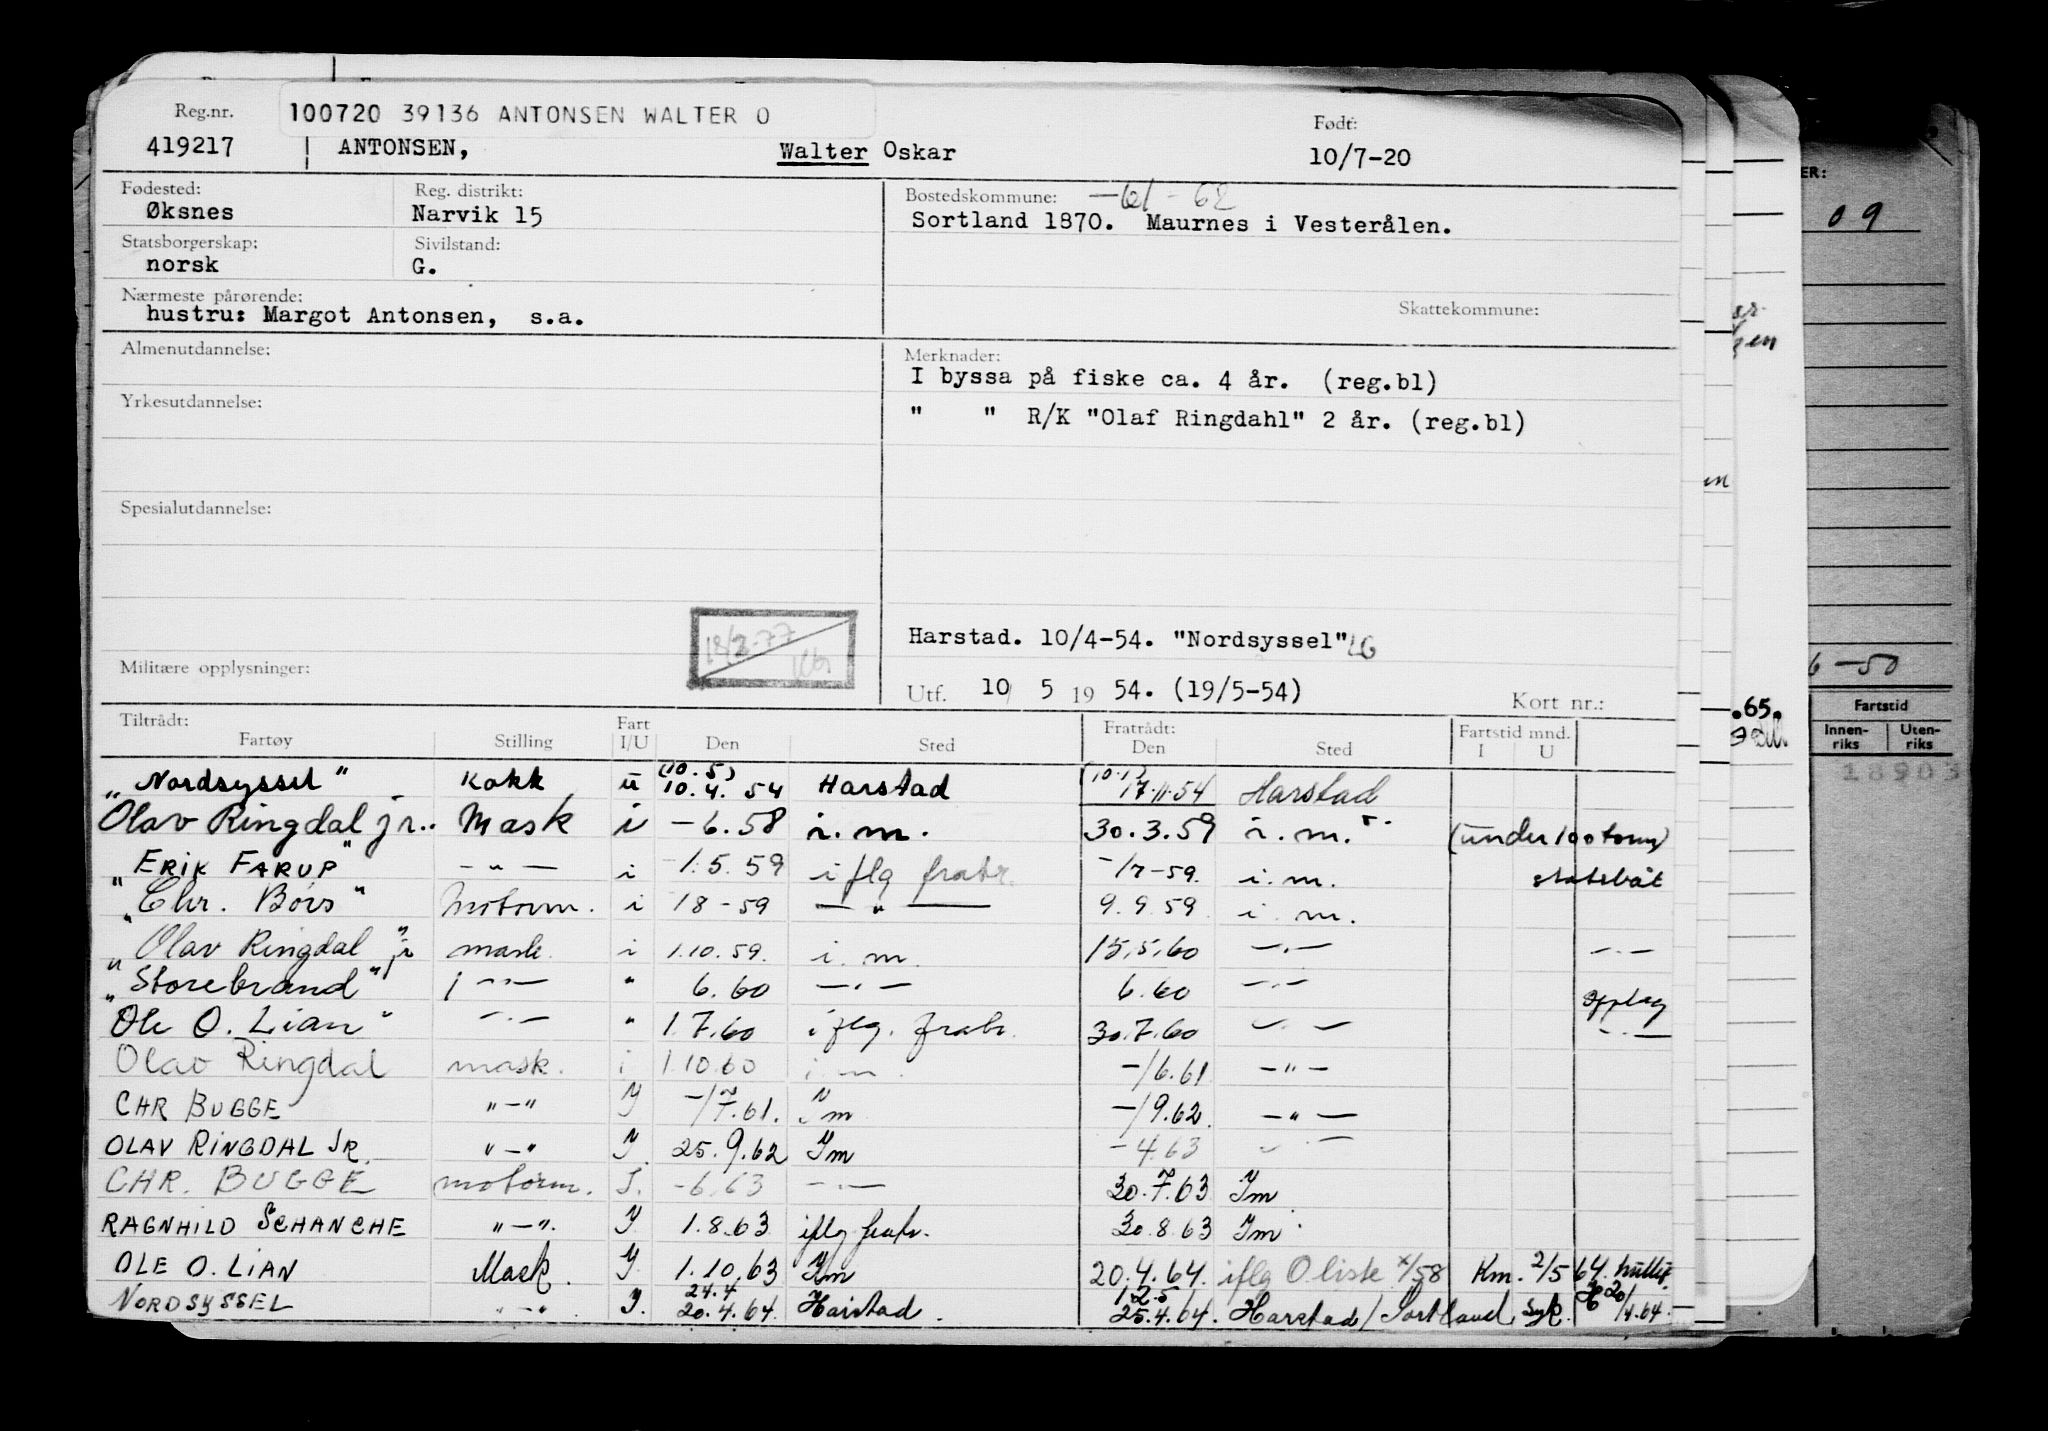 100720 39136 ANTONSEN WALTER O
Reg.nr. Født:
419217 ANTONSEN, Walter Oskar 10/7-20
Fødested: Reg. distrikt: Bostedskommune: -61-62
Øksnes Narvik 15 Sortland 1870. Maurnes i Vesterålen.
Statsborgerskap: Sivilstand:
norsk G.
Nærmeste pårørende: Skattekommune:
hustru: Margot Antonsen, s.a.
Almenutdannelse: Merknader:
I byssa på fiske ca. 4 år. (reg.bl)
Yrkesutdannelse:
" " R/K "Olaf Ringdahl" 2 år. (reg.bl)
Spesialutdannelse:
18/2-77
Harstad. 10/4-54. "Nordsyssel"
Militære opplysninger:
Utf. 10 5 19 54. (19/5-54) Kort nr.:
Tiltrådt: Fartøy Stilling Fart I/U Den Sted Fratrådt: Den Sted Fartstid mnd. I U
"Nordsyssel" Kokk u (10.5) 10.4.54 Harstad 17.11.54 Harstad
Olav Ringdal jr. Mask i -6.58 i.m. 30.3.59 i.m. (under 100 tonn)
"ERIK FARUP" -"- i 1.5.59 iflg fratr. -/7-59. i.m. statsbåt
"Chr. Børs" Motorm. i 18-59 -"- 9.9.59 i.m.
"Olav Ringdal jr" mask. i 1.10.59. i.m. 15.5.60 -"- -"-
"Storebrand" -"- " 6.60 -"- 6.60 -"- opplag
"Ole O. Lian" -"- " 1.7.60 iflg. fratr. 30.7.60 -"- -"-
Olav Ringdal mask. i 1.10.60 i.m. -/6.61 -"-
CHR BUGGE "-" I -/7.61. Im -/9.62 -"-
OLAV RINGDAL JR. "-" I. 25.9.62 Im -4.63 -"-
CHR. BUGGE motorm. I. -6.63 -"- 30.7.63 Im
RAGNHILD SCHANCHE "-". I 1.8.63 iflg fratr. 30.8.63 Im
OLE O. LIAN Mask. I. 1.10.63 Im 20.4.64. iflg O liste 4/58 Km. 2/5 64.
NORDSYSSEL -"- I. 24.4 20.4.64 Harstad. 12.5 25.4.64. Harstad/Sortland. Syk.
ER:
09
6-50
.65.
Fartstid
Innen-riks Uten-riks
18903